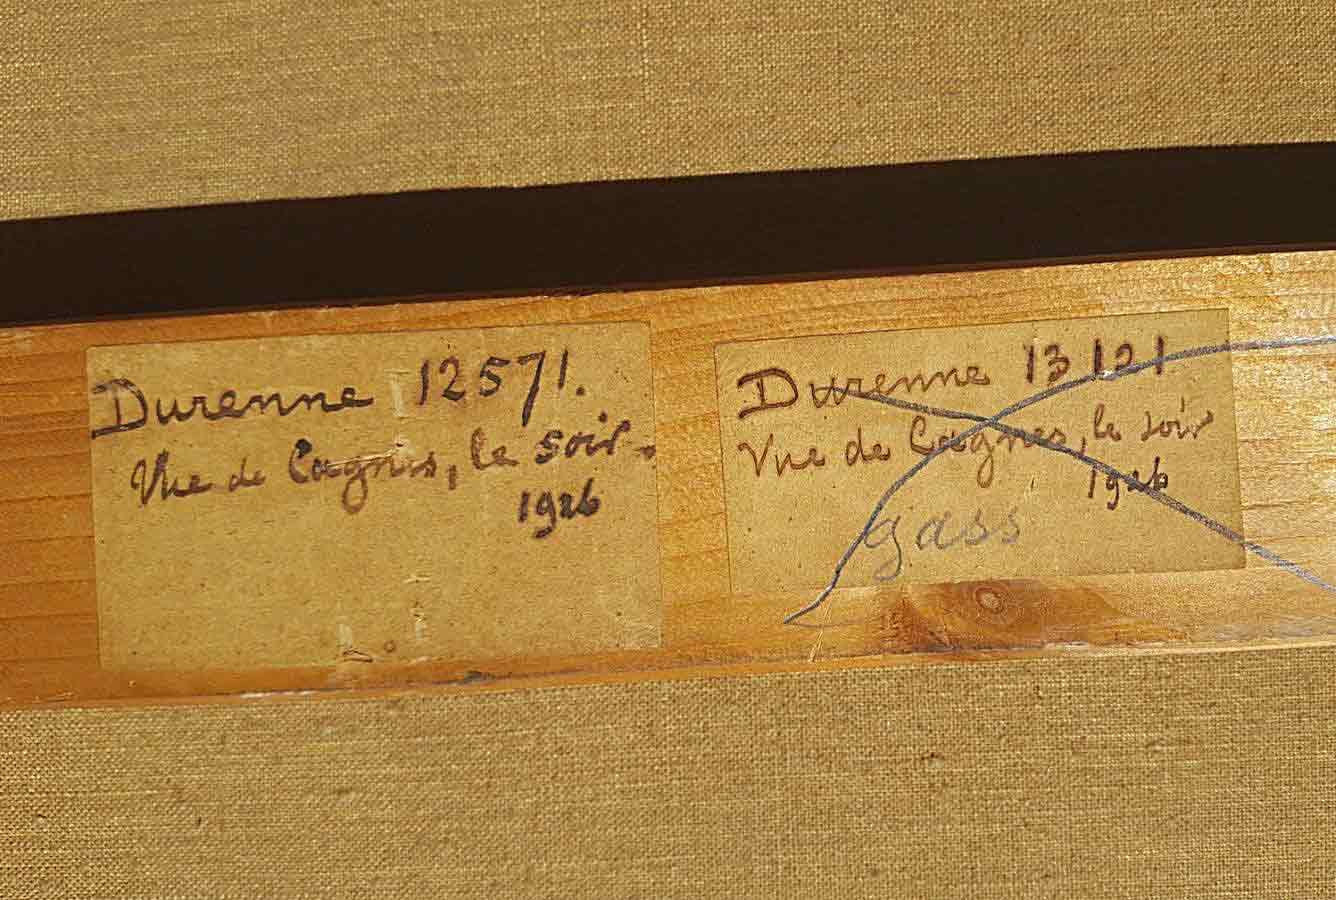 Durenne 12571.
Vue de Cagnes, le soir.
1926
Durenne 13121
Vue de Cagnes, le soir
1926
gass